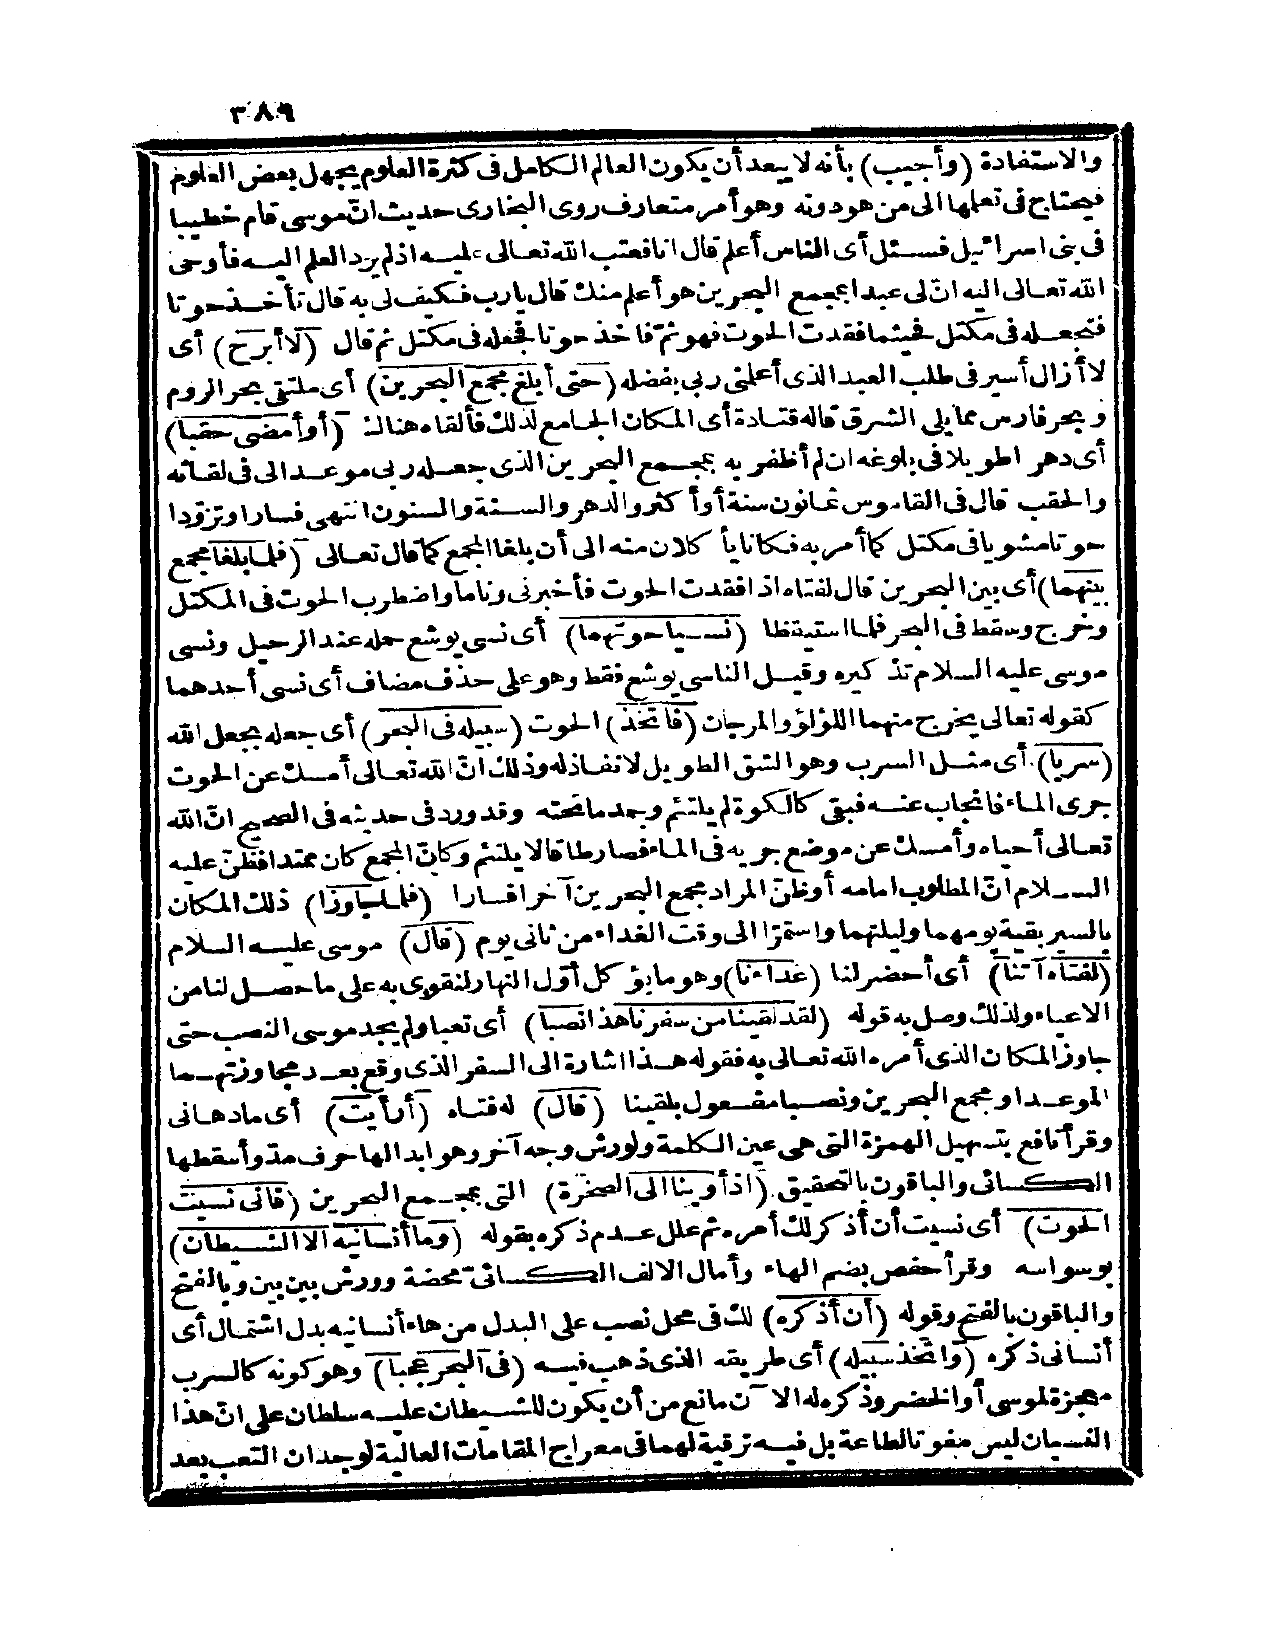 ٣٨٩
والاستفادة (وأجيب) بأنه لا يبعد أن يكون العالم الكامل فى كثرة العلوم يجهل بعض العلوم
فيحتاج فى تعلمها الى من هو دونه وهو أمر متعارف روى البخارى حديث انّ موسى قام خطيبا
فى بنى اسرائيل فسئل أى الناس أعلم قال انا فعتب الله تعالى عليه اذ لم يرد العلم اليه فأوحى
الله تعالى اليه انّ لى عبدا بمجمع البحرين هو أعلم منك قال يارب فكيف لى به قال تأخذ حوتا
فتجعله فى مكتل فحيثما فقدت الحوت فهو ثمّ فاخذ حوتا فجعله فى مكتل ثم قال (لا أبرح) أى
لا أزال أسير فى طلب العبد الذى أعلنى ربى بفضله (حتى أبلغ مجمع البحرين) أى ملتقى بحر الروم
وبحر فارس مما يلى الشرق قاله قتادة أى المكان الجامع لذلك فألقاه هناك (أو أمضى حقبا)
أى دهرا طويلا فى بلوغه ان لم أظفر به بمجمع البحرين الذى جعله ربى موعدا لى فى لقائه
والحقب قال فى القاموس ثمانون سنة أو أكثر والدهر والسنة والسنون انتهى فسارا وتزوّدا
حوتا مشويا فى مكتل كما أمر به فكانا يأكلان منه الى أن بلغا المجمع كما قال تعالى (فلما بلغا مجمع
بينهما) أى بين البحرين قال لفتاه اذا فقدت الحوت فأخبرنى وناما واضطرب الحوت فى المكتل
وخرج وسقط فى البحر فلما استيقظا (نسيا حوتهما) أى نسى يوشع حمله عند الرحيل ونسى
موسى عليه السلام تذكيره وقيل الناسى يوشع فقط وهو على حذف مضاف أى نسى أحدهما
كقوله تعالى يخرج منهما اللؤلؤ والمرجان (فاتخذ) الحوت (سبيله فى البحر) أى جعله بجعل الله
(سربا) أى مثل السرب وهو الشق الطويل لا نفاذ له وذلك انّ الله تعالى أمسك عن الحوت
جرى الماء فانجاب عنه فبقى كالكوة لم يلتئم وجمد ما تحته وقد ورد فى حديثه فى الصحيح انّ الله
تعالى أحياه وأمسك عن موضع جريه فى الماء فصار طاقا لا يلتئم وكانّ المجمع كان ممتدا فظنّ عليه
السلام انّ المطلوب امامه أو ظنّ المراد مجمع البحرين آخر افسارا (فلما جاوزا) ذلك المكان
بالسير بقية يومهما وليلتهما واستمرّا الى وقت الغداء من ثانى يوم (قال) موسى عليه السلام
(لفتاه آتنا) أى أحضر لنا (غداءنا) وهو ما يؤكل أوّل النهار لنقوى به على ما حصل لنا من
الاعياء ولذلك وصل به قوله (لقد لقينا من سفرنا هذا نصبا) أى تعبا ولم يجد موسى النصب حتى
جاوز المكان الذى أمره الله تعالى به فقوله هذا اشارة الى السفر الذى وقع بعد مجاوزتهما
الموعد او مجمع البحرين ونصبا مفعول بلقينا (قال) له فتاه (أرأيت) أى ما دهانى
وقرأ نافع بتسهيل الهمزة التى هى عين الكلمة ولورش وجه آخر وهو ابدالها حرف مدّ وأسقطها
الكسائى والباقون بالتحقيق (اذ أوينا الى الصخرة) التى بمجمع البحرين (فانى نسيت
الحوت) أى نسيت أن أذكر لك أمره ثم علل عدم ذكره بقوله (وما أنسانيه الا الشيطان)
بوسواسه وقرأ حفص بضم الهاء وأمال الالف الكسائىّ محضة وورش بين بين وبالفتح
والباقون بالفتح وقوله (أن أذكره) لك فى محل نصب على البدل من هاء أنسانيه بدل اشتمال أى
أنسانى ذكره (واتخذ سبيله) أى طريقه الذى ذهب فيه (فى البحر عجبا) وهو كونه كالسرب
معجزة لموسى أو الخضر وذكره له الآن مانع من أن يكون للشيطان عليه سلطان على انّ هذا
النسيان ليس مفوتا لطاعة بل فيه ترقية لهما فى معراج المقامات العالية لوجدان التعب بعد